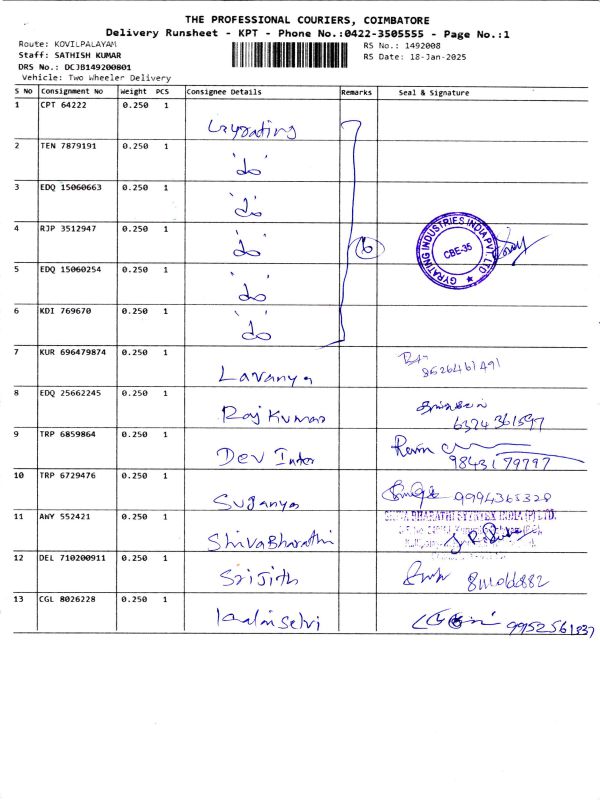 THE PROFESSIONAL COURIERS, COIMBATORE
Delivery Runsheet - KPT - Phone No.:0422-3505555 - Page No.:1
Route: KOVILPALAYAM
RS No.: 1492008
Staff: SATHISH KUMAR
RS Date: 18-Jan-2025
DRS No.: DCJB149200801
Vehicle: Two Wheeler Delivery
S No Consignment No Weight PCS Consignee Details Remarks Seal & Signature
1 CPT 64222 0.250 1 Gyrating
2 TEN 7879191 0.250 1 "do"
3 EDQ 15060663 0.250 1 "do"
4 RJP 3512947 0.250 1 "do" 6
GYRATING INDUSTRIES INDIA PVT. LTD
CBE-35
5 EDQ 15060254 0.250 1 "do"
6 KDI 769670 0.250 1 "do"
7 KUR 696479874 0.250 1 Lavanya 8526461491
8 EDQ 25662245 0.250 1 Raj Kumar 6374361597
9 TRP 6859864 0.250 1 Dev Inter 9843179797
10 TRP 6729476 0.250 1 Suganya 9994365328
11 AWY 552421 0.250 1 Shiva Bharathi
SHIVA BHARATHI SYNTEX INDIA (P) LTD.
12 DEL 710200911 0.250 1 Srijith
13 CGL 8026228 0.250 1 Kalaiselvi 9952561337